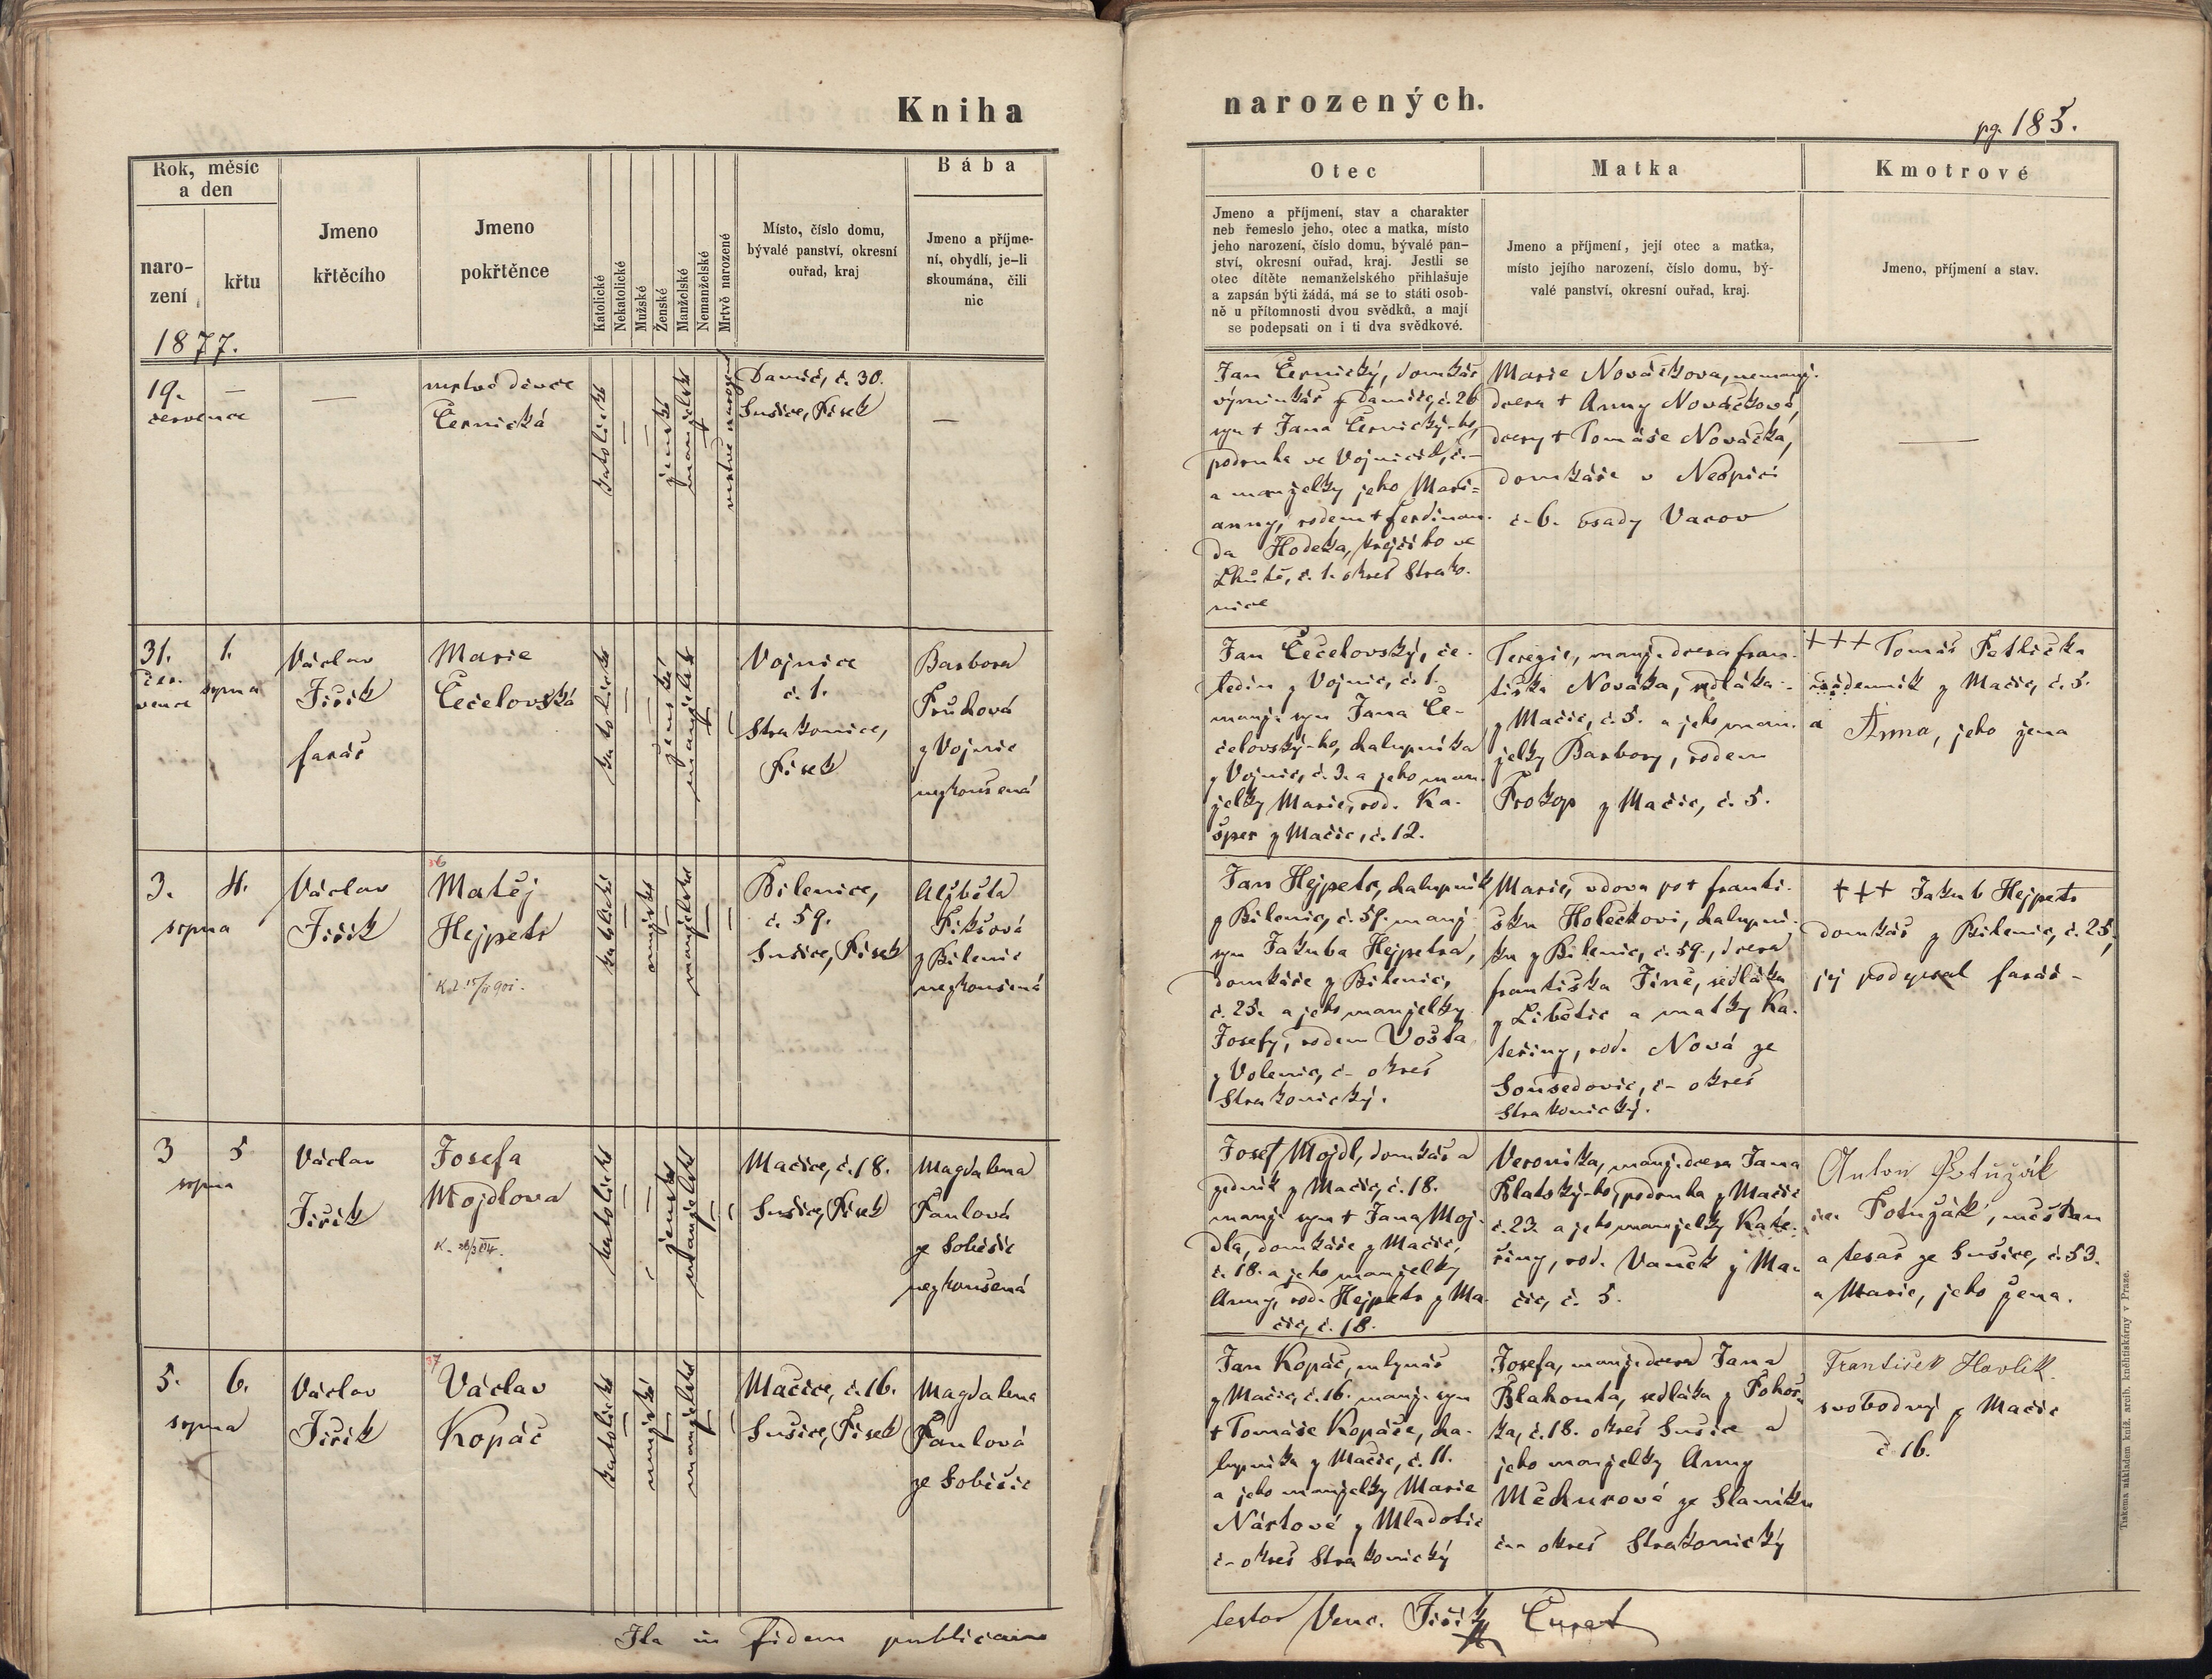 Kniha
narozených.
pg. 185.
Rok, měsíc
a den
naro-
zení
křtu
1877.
Jmeno
křtěcího
Jmeno
pokřtěnce
Katolické
Nekatolické
Mužské
Ženské
Manželské
Nemanželské
Mrtvě narozené
Místo, číslo domu,
bývalé panství, okresní
ouřad, kraj
Bába
Jmeno a příjme-
ní, obydlí, je-li
skoumána, čili
nic
Otec
Jmeno a příjmení, stav a charakter
neb řemeslo jeho, otec a matka, místo
jeho narození, číslo domu, bývalé pan-
ství, okresní ouřad, kraj. Jestli se
otec dítěte nemanželského přihlašuje
a zapsán býti žádá, má se to státi osob-
ně u přítomnosti dvou svědků, a mají
se podepsati on i ti dva svědkové.
Matka
Jmeno a příjmení, její otec a matka,
místo jejího narození, číslo domu, bý-
valé panství, okresní ouřad, kraj.
Kmotrové
Jmeno, příjmení a stav.
19.
července
—
—
mrtvé děvče
Černická
katolické
ženské
manželské
mrtvě narozené
Damíč, č. 30.
Sušice, Písek
—
Jan Černický, domkář
výminkář z Damíče, č. 26
syn † Jana Černický-ho,
podruha ve Vojnicích, č. –
a manželky jeho Mari=
anny, rodem † Ferdinan-
da Hodeka, krejčího ve
Lhůtě, č. 1. okres Strako-
nice
Marie Nováčkova, nemanž.
dcera † Anny Nováčkové,
dcery † Tomáše Nováčka,
domkáře v Nespici
č. 6. osady Vacov
—
31.
čer-
vence
1.
srpna
Václav
Jiřík
farář
Marie
Čečelovská
katolické
ženské
manželské
Vojnice
č. 1.
Strakonice,
Písek
Barbora
Průchová
z Vojnic
nezkoušená
Jan Čečelovský, če-
ledín z Vojnic, č. 1.
manž. syn Jana Če-
čelovský-ho, chalupníka
z Vojnic, č. 3. a jeho man-
želky Marie, rod. Ka-
šper z Mačic, č. 12.
Terezie, manž. dcera Fran-
tiška Nováka, sedláka
z Mačic, č. 5. a jeho man-
želky Barbory, rodem
Prokop z Mačic, č. 5.
+++ Tomáš Petlička
nádenník z Mačic, č. 5.
a Anna, jeho žena
3.
srpna
4.
Václav
Jiřík
36
Matěj
Hejpetr
katolické
mužské
manželské
Bílenice,
č. 59.
Sušice, Písek
Alžběta
Pikšová
z Bílenic
nezkoušená
Jan Hejpetr, chalupník
z Bílenic, č. 59. manž.
syn Jakuba Hejpetra,
domkáře z Bílenic,
č. 25. a jeho manželky
Josefy, rodem Vošta
z Volenic, č – okres
Strakonický.
Marie, vdova po † Franti-
šku Holečkovi, chalupní-
ku z Bílenic, č. 59., dcera
Františka Jině, sedláka
z Libětic a matky Ka-
teřiny, rod. Nová ze
Sousedovic, č – okres
Strakonický.
+++ Jakub Hejpetr
domkář z Bílenic, č. 25,
jej podepsal farář –
3
srpna
5
Václav
Jiřík
Josefa
Mojdlova
katolické
ženské
manželské
Mačice, č. 18.
Sušice, Písek
Magdalena
Paulová
ze Soběšic
nezkoušená
Josef Mojdl, domkář a
zedník z Mačic, č. 18.
manž. syn † Jana Moj-
dla, domkáře z Mačic,
č. 18. a jeho manželky
Anny, rod. Hejpetr z Ma-
čic, č. 18.
Veronika, manž. dcera Jana
Blatský-ho, podruha z Mačic
č. 23. a jeho manželky Kate-
řiny, rod. Vaněk z Ma-
čic, č. 5.
Anton Potužák
Potužák, měšťan
a tesař ze Sušice, č. 53.
a Marie, jeho žena.
5.
srpna
6.
Václav
Jiřík
37
Václav
Kopáč
katolické
mužské
manželské
Mačice, č. 16.
Sušice, Písek
Magdalena
Paulová
ze Soběšic
Jan Kopáč, mlynář
z Mačic, č. 16. manž. syn
† Tomáše Kopáče, cha-
lupníka z Mačic, č. 11.
a jeho manželky Marie
Nártové z Mladotic
č – okres Strakonický
Josefa, manž. dcera Jana
Blahouta, sedláka z Pohor-
ka, č. 18. okres Sušice a
jeho manželky Anny
Měchurové ze Slaníku
č – okres Strakonický
František Havlík.
svobodný z Mačic
č 16.
Ita in fidem publicam
testor Venc. Jiřík
Tiskem a nákladem kníž. arcib. knihtiskárny v Praze.